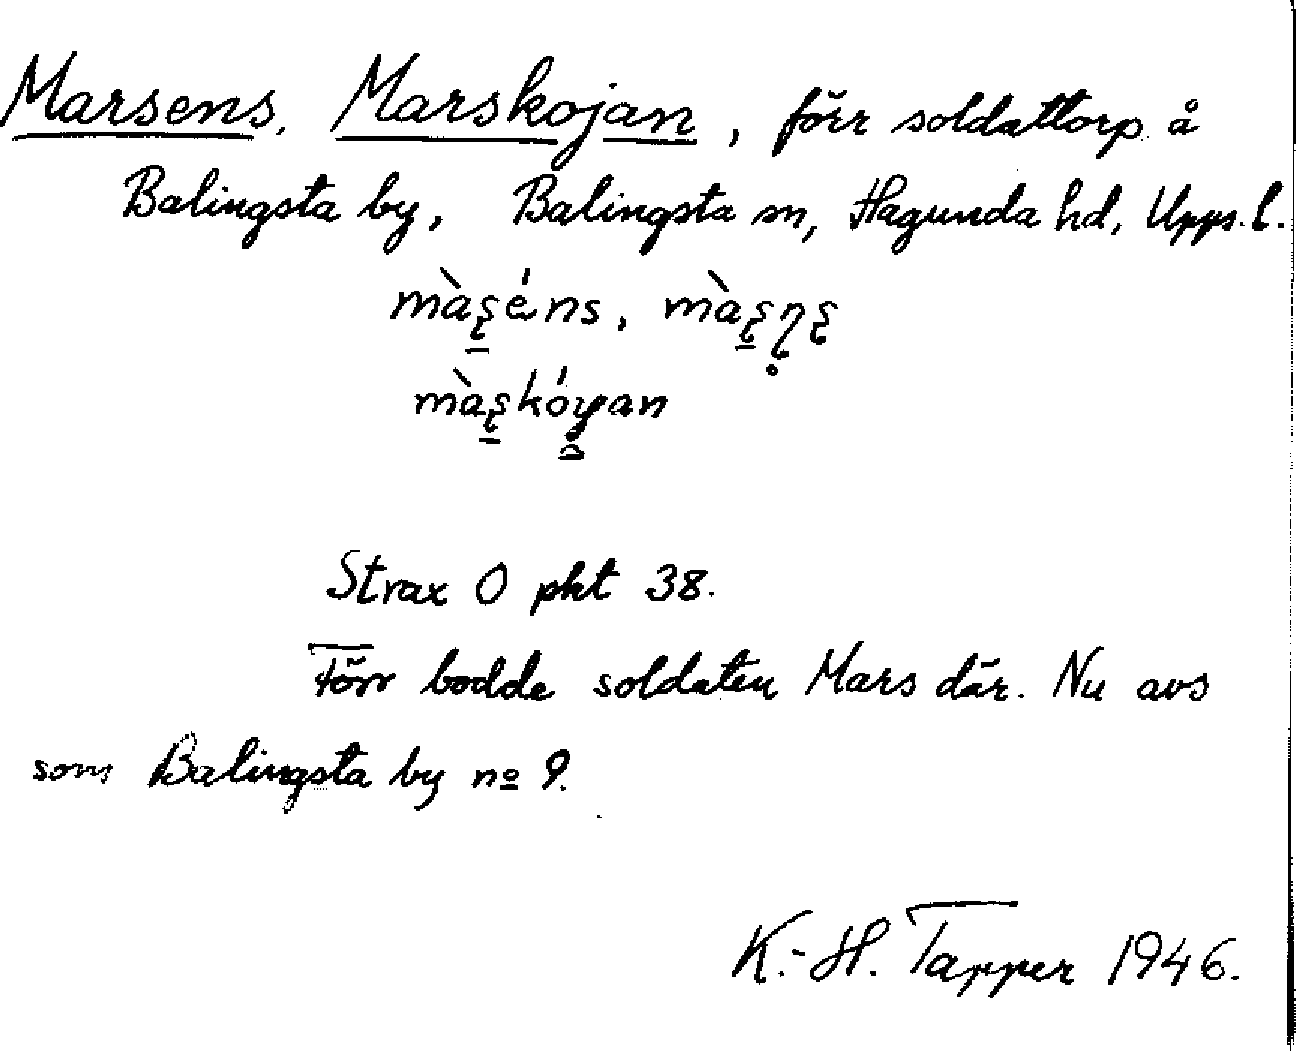 Marsens, Marskojan, förr soldattorp å
Balingsta by, Balingsta sn, Hagunda hd, Upps. l.
màʂéns, màʂɳʂ
màʂkóyan
Strax O pkt 38.
Förr bodde soldaten Mars där. Nu avs
som Balingsta by nº 9.
K.-H. Tapper 1946.